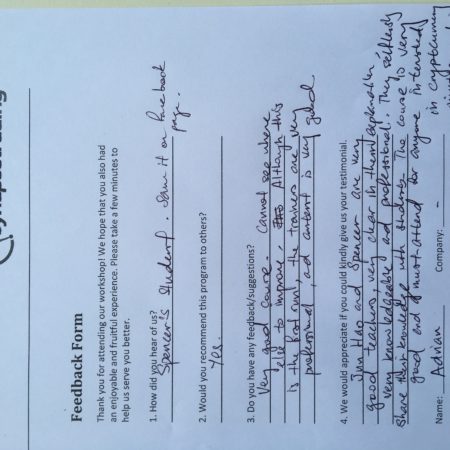 Feedback Form
Thank you for attending our workshop! We hope that you also had
an enjoyable and fruitful experience. Please take a few minutes to
help us serve you better.
1. How did you hear of us?
Spencer's student. Saw it on Facebook
page.
2. Would you recommend this program to others?
Yes.
3. Do you have any feedback/suggestions?
Very good course. Cannot see where
else to improve. Although this
is the first run, the trainers are very
professional, and content is very good
4. We would appreciate if you could kindly give us your testimonial.
Jun Hao and Spencer are very
good teachers, very clear in their explanation
very knowledgeable and professional. They selflessly
share their knowledge with students. The course is very
good and a must-attend for anyone interested
in cryptocurrency
Name: Adrian Company: -